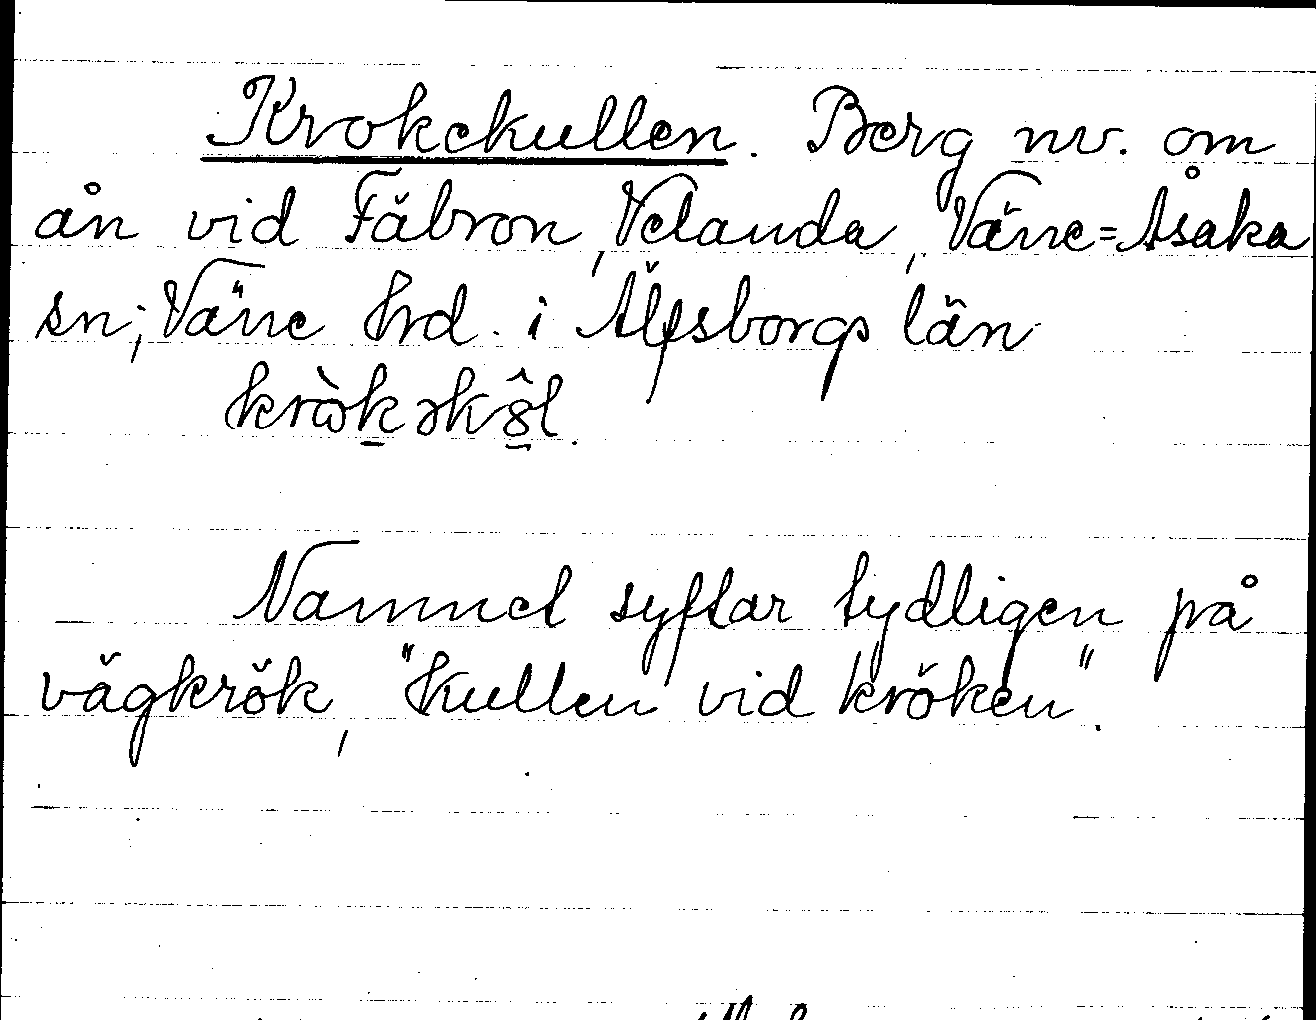 Krokekullen. Berg nv. om
ån vid Fäbron, Velanda, Väne=Åsaka
sn; Väne hrd. i Älfsborgs län
krὼkəkȣ̂l.
Namnet syftar tydligen på
vägkrök, "Kullen vid kröken".